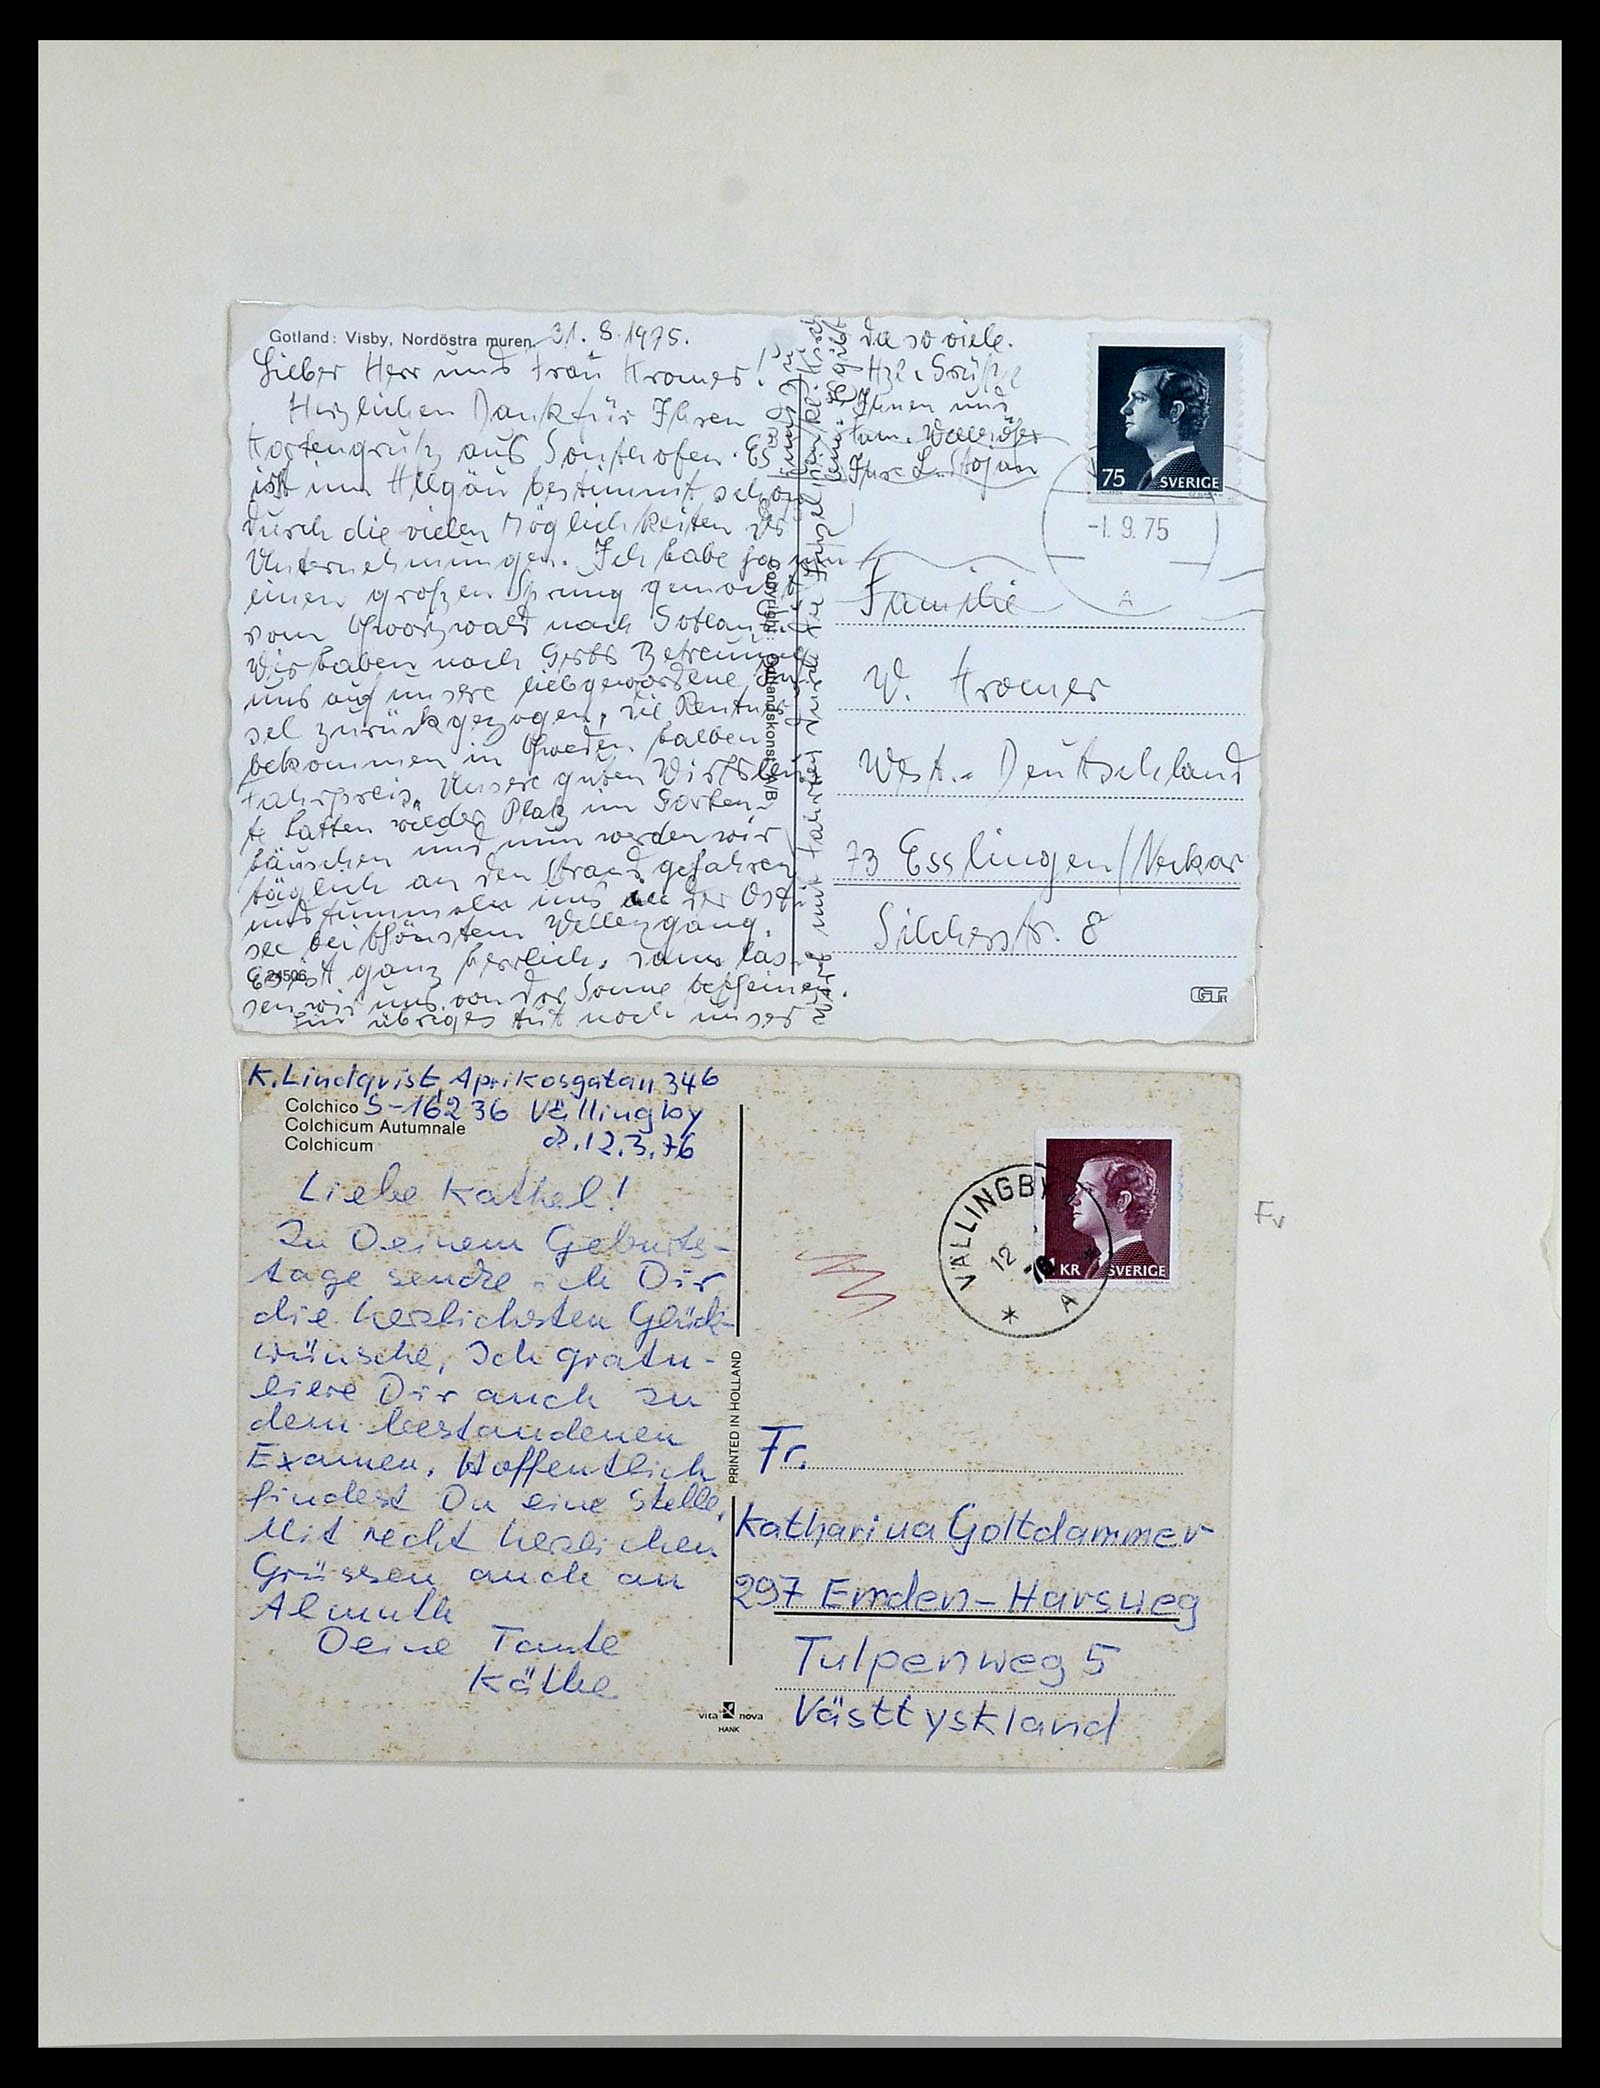 Gotland: Visby, Nordöstra muren. 31.8.1975.
Lieber Herr und Frau Kromer!
Herzlichen Dank für Ihren
Kartengruß aus Sonthofen. Es
ist im Allgäu bestimmt schön
durch die vielen Möglichkeiten der
Unternehmungen. Ich habe ja nun
einen großen Sprung gemacht
vom Schwarzwald nach Gotland.
Wir haben nach Betreuung
uns auf unsere liebgewordene In-
sel zurückgezogen, die Rentner
bekommen in Schweden halben
Fahrpreis. Unsere guten Wirtsleu-
te hatten wieder Platz im Garten-
häuschen und nun werden wir
täglich an den Strand gefahren
und tummeln uns in der Ost-
see bei schönstem Wellengang.
Es ist ganz herrlich, dann las-
sen wir uns von der Sonne bescheinen.
Ein übriges tut noch unser
G 24506
Copyright: Gotlandskonst A/B
da so viele.
Hzl. Grüße
Ihnen und
Fam.
Ihre L. Stojan
75 SVERIGE
-1.9.75
A
Familie
W. Kromer
West.-Deutschland
73 Esslingen/Neckar
Silcherstr. 8
GT
K. Lindqvist, Aprikosgatan 346
S-16236 Vällingby
d. 12.3.76
Colchico
Colchicum Autumnale
Colchicum
Liebe Kathel!
Zu Deinem Geburts-
tage sende ich Dir
die herzlichsten Glück-
wünsche, Ich gratu-
liere Dir auch zu
dem bestandenen
Examen. Hoffentlich
findest Du eine Stelle,
Mit recht herzlichen
Grüssen auch an
Almuth
Deine Tante
Käthe
PRINTED IN HOLLAND
vita nova
HANK
VÄLLINGBY
12
A
1 KR SVERIGE
Fr.
Katharina Goltdammer
297 Emden-Harsweg
Tulpenweg 5
Västtyskland
Fv